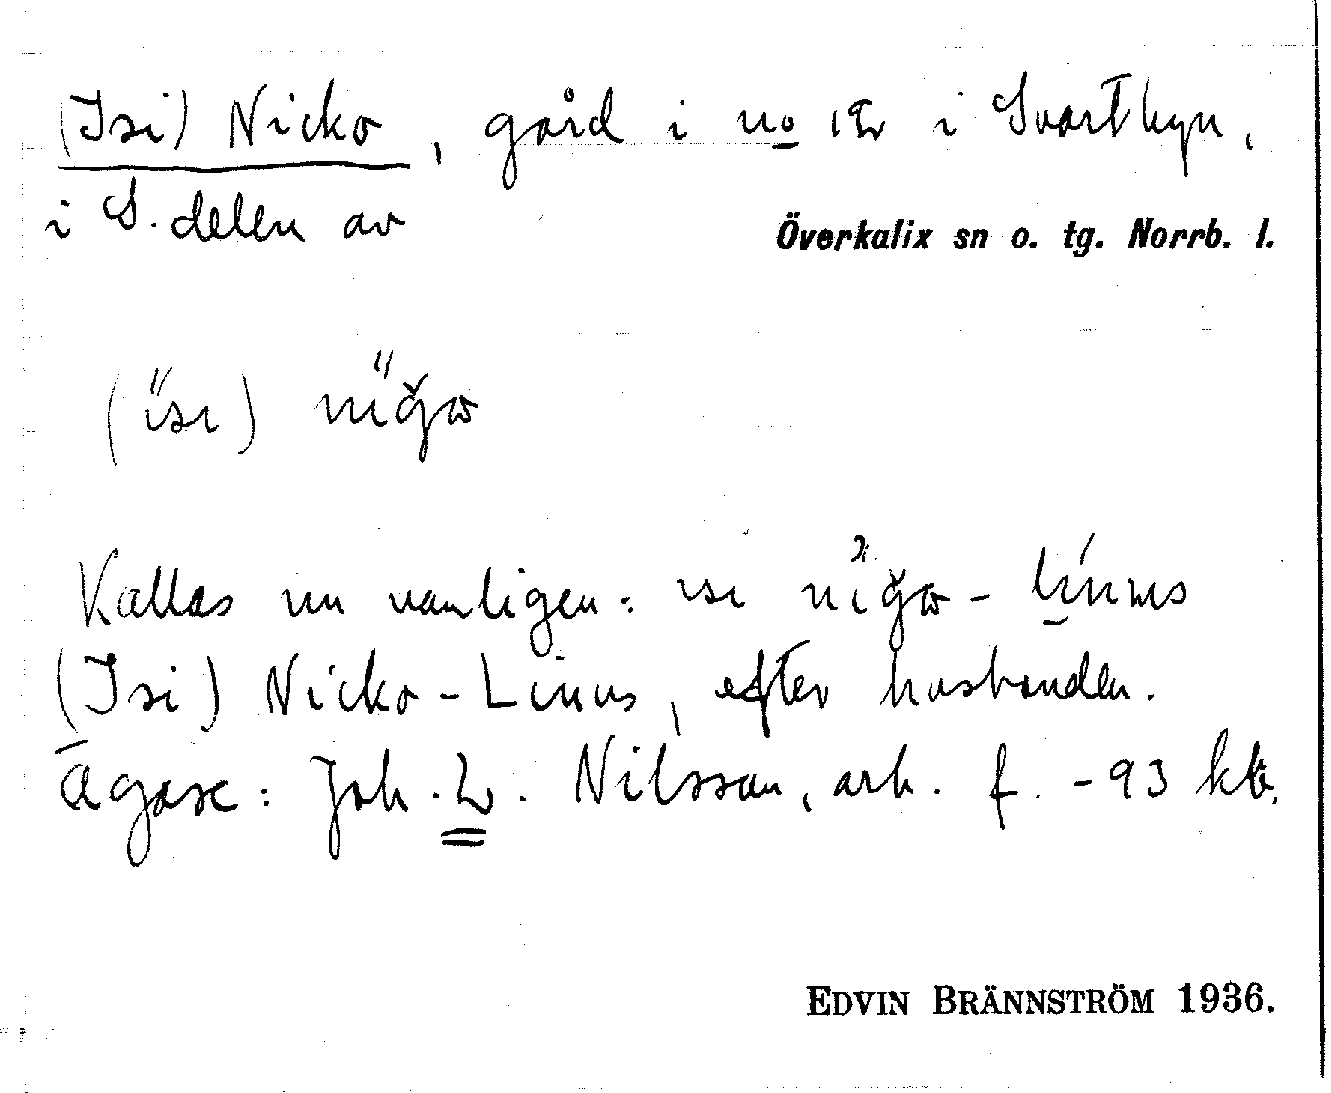 (Isi) Nicko, gård i no 12 i Svartbyn,
i S. delen av
Överkalix sn o. tg. Norrb. l.
Kallas nu vanligen: ısı nığω - lı́nus
(Isi) Nicko-Linus, efter husbonden.
Ägare: Joh. L. Nilsson, arb. f. -93 kb.
EDVIN BRÄNNSTRÖM 1936.